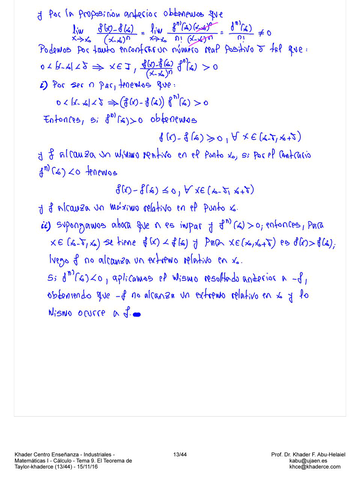 y por la proposición anterior obtenemos que
lim x→x₀ f(x)-f(x₀)/(x-x₀)ⁿ = lim x→x₀ fⁿ⁾(x₀)(x-x₀)ⁿ/n!(x-x₀)ⁿ = fⁿ⁾(x₀)/n! ≠ 0
Podemos por tanto encontrar un número real positivo δ tal que:
0<|x-x₀|<δ ⇒ x∈I, f(x)-f(x₀)/(x-x₀)ⁿ fⁿ⁾(x₀) > 0
i) Por ser n par, tenemos que:
0<|x-x₀|<δ ⇒ (f(x)-f(x₀)) fⁿ⁾(x₀) > 0
Entonces, si fⁿ⁾(x₀)>0 obtenemos
f(x)-f(x₀) ≥ 0, ∀ x∈(x₀-δ, x₀+δ)
y f alcanza un mínimo relativo en el punto x₀, si por el contrario
fⁿ⁾(x₀)<0 tenemos
f(x)-f(x₀) ≤ 0, ∀ x∈(x₀-δ, x₀+δ)
y f alcanza un máximo relativo en el punto x₀
ii) Supongamos ahora que n es impar y fⁿ⁾(x₀)>0; entonces, para
x∈(x₀-δ, x₀) se tiene f(x)<f(x₀) y para x∈(x₀, x₀+δ) es f(x)>f(x₀),
luego f no alcanza un extremo relativo en x₀.
Si fⁿ⁾(x₀)<0, aplicamos el mismo resultado anterior a -f,
obteniendo que -f no alcanza un extremo relativo en x₀ y lo
mismo ocurre a f.
Khader Centro Enseñanza - Industriales -
Matemáticas I - Cálculo - Tema 9. El Teorema de
Taylor-khaderce (13/44) - 15/11/16
13/44
Prof. Dr. Khader F. Abu-Helaiel
kabu@ujaen.es
khce@khaderce.com